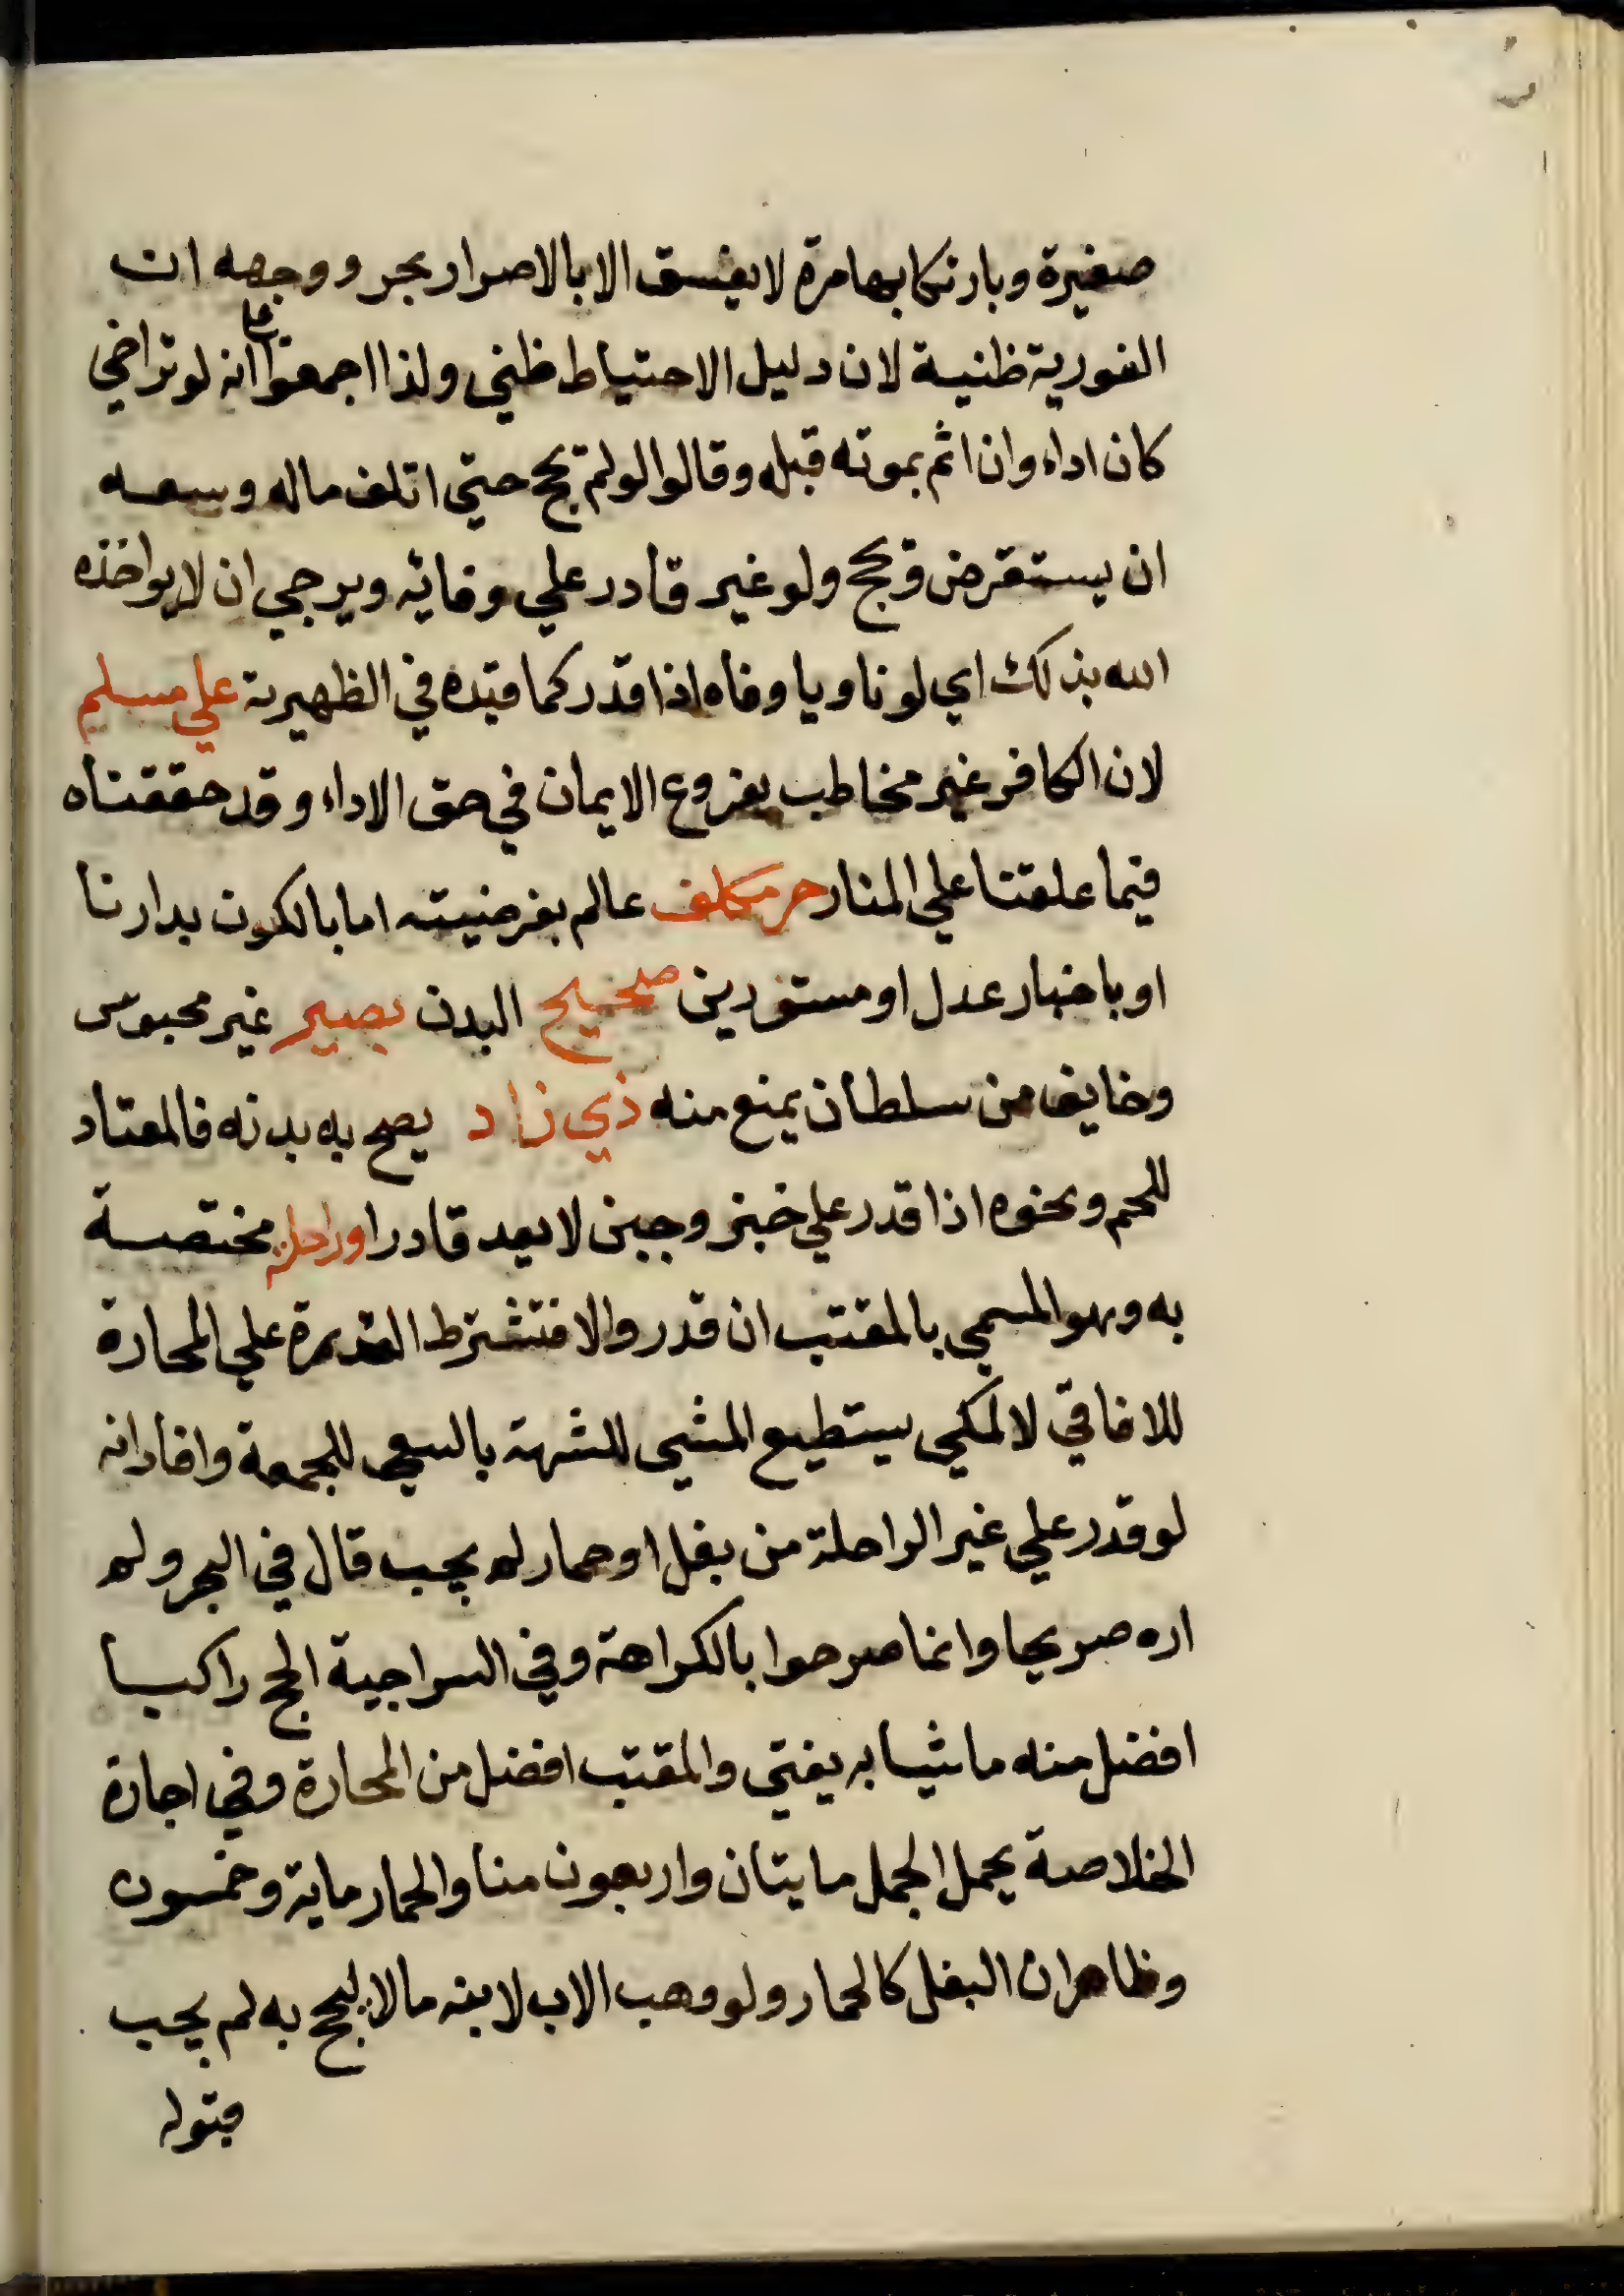 صغيرة وبارتكابها مرة لا يفسق الا بالاصرار بحر ووجهه ان
الفورية ظنية لان دليل الاحتياط ظني ولذا اجمعوا علي انه لو تراخي
كان اداء وان اثم بموته قبله وقالوا لو لم يحج حتي اتلف ماله وسعه
ان يستقرض ويحج ولو غير قادر علي وفائه ويرجي ان لا يواخذه
الله بذلك اي لو ناويا وفاه اذا قدر كما قيده في الظهيرية علي مسلم
لان الكافر غير مخاطب بفروع الايمان في حق الاداء وقد حققناه
فيما علقنا علي المنار حر مكلف عالم بفرضيته اما بالكون بدارنا
او باخبار عدل او مستورين صحيح البدن بصير غير محبوس
وخايف من سلطان يمنع منه ذي زاد يصح به بدنه فالمعتاد
للحم ونحوه اذا قدر علي خبز وجبن لا يعد قادرا وراحلة مختصة
به وهو المسمي بالمقتب ان قدر والا فتشترط القدرة علي المحارة
للافاقي لا لمكي يستطيع المشي للشبهة بالسعي للجمعة وافاد انه
لو قدر علي غير الراحلة من بغل او حمار لم يجب قال في البحر ولم
اره صريحا وانما صرحوا بالكراهة وفي السراجية الحج راكبا
افضل منه ماشيا به يفتي والمقتب افضل من المحارة وفي اجارة
الخلاصة يحمل الجمل مايتان واربعون منا والحمار ماية وخمسون
وظاهر ان البغل كالحمار ولو وهب الاب لابنه مالا ليحج به لم يجب
قبوله